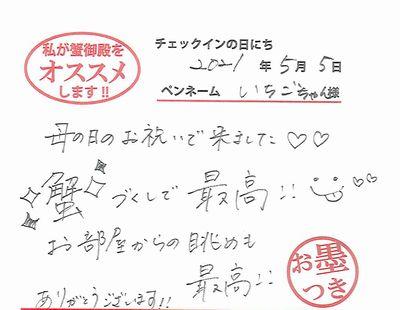 私が蟹御殿を
オススメ
します!!
チェックインの日にち
2021年5月5日
ペンネーム いちごちゃん様
母の日のお祝いで来ました♡♡
蟹づくしで最高!!
お部屋からの眺めも
最高!!
ありがとうございます!!
お墨つき